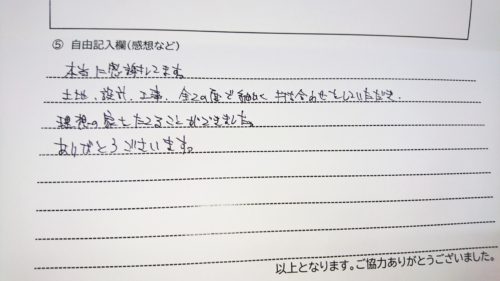 ⑤ 自由記入欄(感想など)
本当に感謝してます。
土地、設計、工事、全ての面で細かく打ち合わせをしていただき、
理想の家をたてることができました。
ありがとうございます。
以上となります。ご協力ありがとうございました。